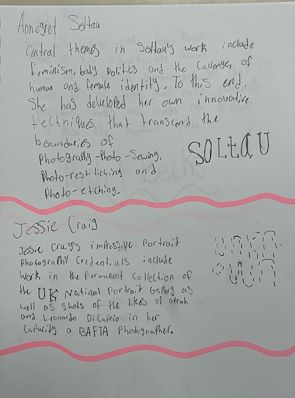 Annegret Soltau
Central themes in Soltau's work include
feminism, body politics and the challenges of
human and female identity. To this end,
She has developed her own innovative
techniques that transcend the
boundaries of
Photography-Photo-Sewing,
Photo-restitching and
Photo-etching.
SOLtaU
Jessie Craig
Jessie Craig's impressive Portrait
Photography Credentials include
Work in the Permanent collection of
the UK National Portrait Gallery as
well as shots of the likes of
and Leonardo DiCaprio in her
Capacity a BAFTA Photographer.